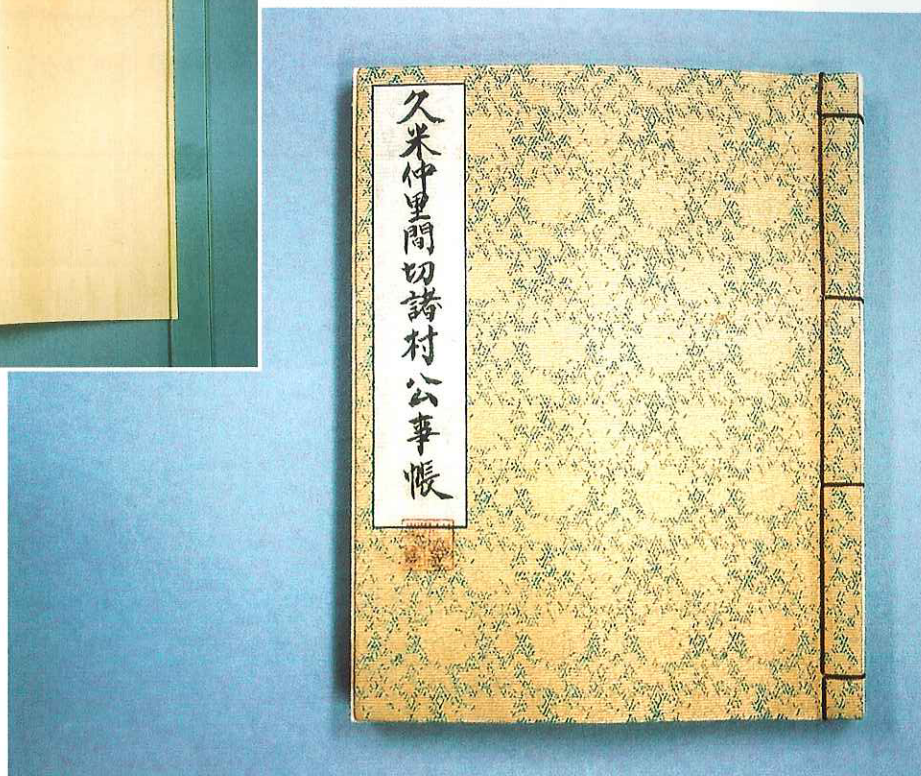 久米仲里間切諸村公事帳